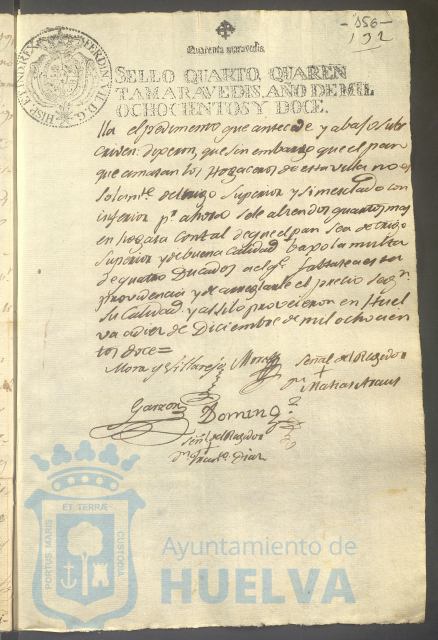 -356-
132
Quarenta maravedis.
HISP. ET IND. REX FERDIN. VII. D. G.
SELLO QUARTO, QUAREN
TA MARAVEDIS, AÑO DE MIL
OCHOCIENTOS Y DOCE.
el pedimento que antecede y abajo subs
criven: dijeron, que sin embargo que el pan
que amasan los Hogaceros de esta villa no es
solamte. del trigo superior y si mesclado con
inferior pr. ahora se le abien dos quartos mas
en hogasa con tal de que el pan sea de trigo
superior y de buena calidad bajo la multa
de quatro Ducados al qe. faltare a esta
providencia y de arreglarse el precio segn.
su calidad, y asi lo proveieron en Huel
va a dies de Diciembre de mil ochocien
tos doce=
Mora y Villarejo Señal del Regidor
Dn. Matias
Garzon Domingz.
Señl. del Regidor
Dn. Franco. Diaz
PORTUS MARIS ET TERRÆ CUSTODIA
Ayuntamiento de
HUELVA